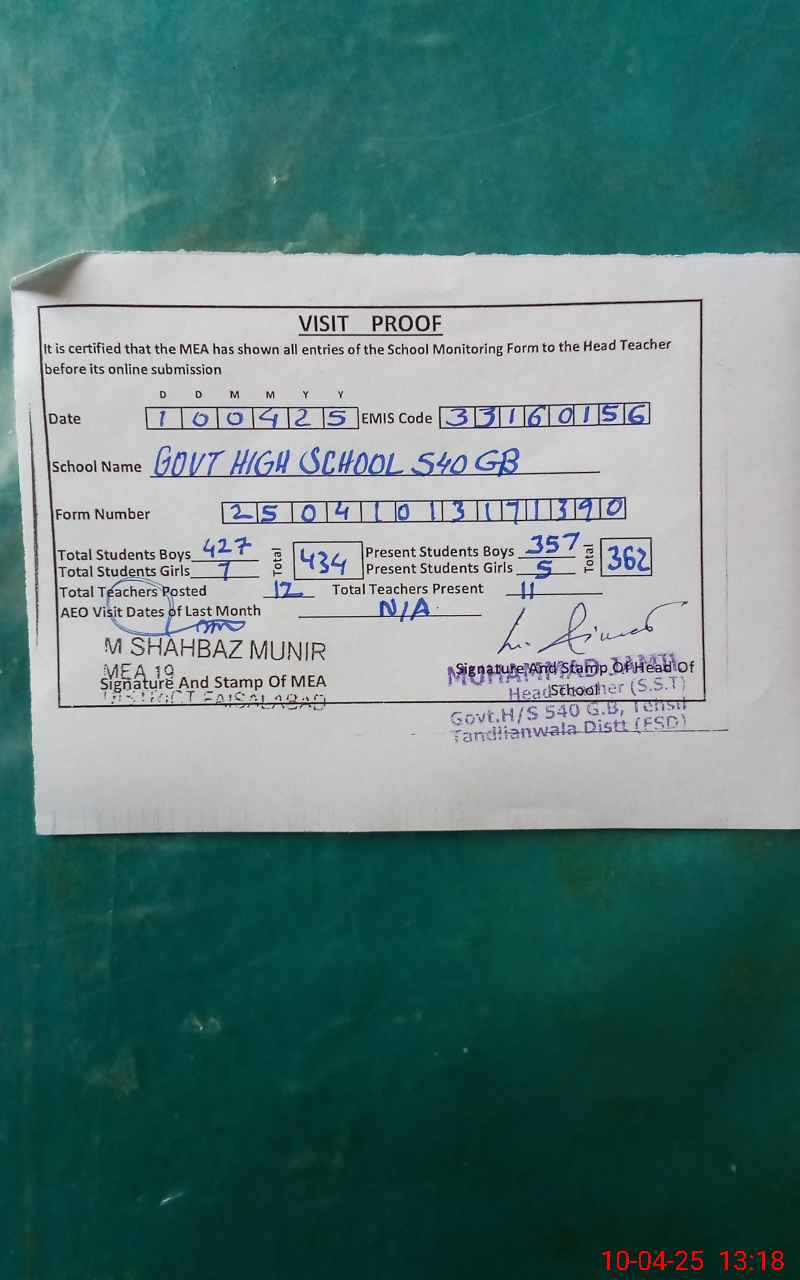 VISIT PROOF
It is certified that the MEA has shown all entries of the School Monitoring Form to the Head Teacher
before its online submission
D D M M Y Y
Date 1 0 0 4 2 5 EMIS Code 3 3 1 6 0 1 5 6
School Name GOVT HIGH SCHOOL 540 GB
Form Number 2 5 0 4 1 0 1 3 1 7 1 3 9 0
Total Students Boys 427 Total 434 Present Students Boys 357 Total 362
Total Students Girls 7 Present Students Girls 5
Total Teachers Posted 12 Total Teachers Present 11
AEO Visit Dates of Last Month N/A
M SHAHBAZ MUNIR
MEA 19
Signature And Stamp Of MEA
DISTRICT FAISALABAD
Signature And Stamp Of Head Of
School
MUHAMMAD JAMIL
Head Teacher (S.S.T)
Govt.H/S 540 G.B, Tehsil
Tandlianwala Distt (FSD)
10-04-25 13:18